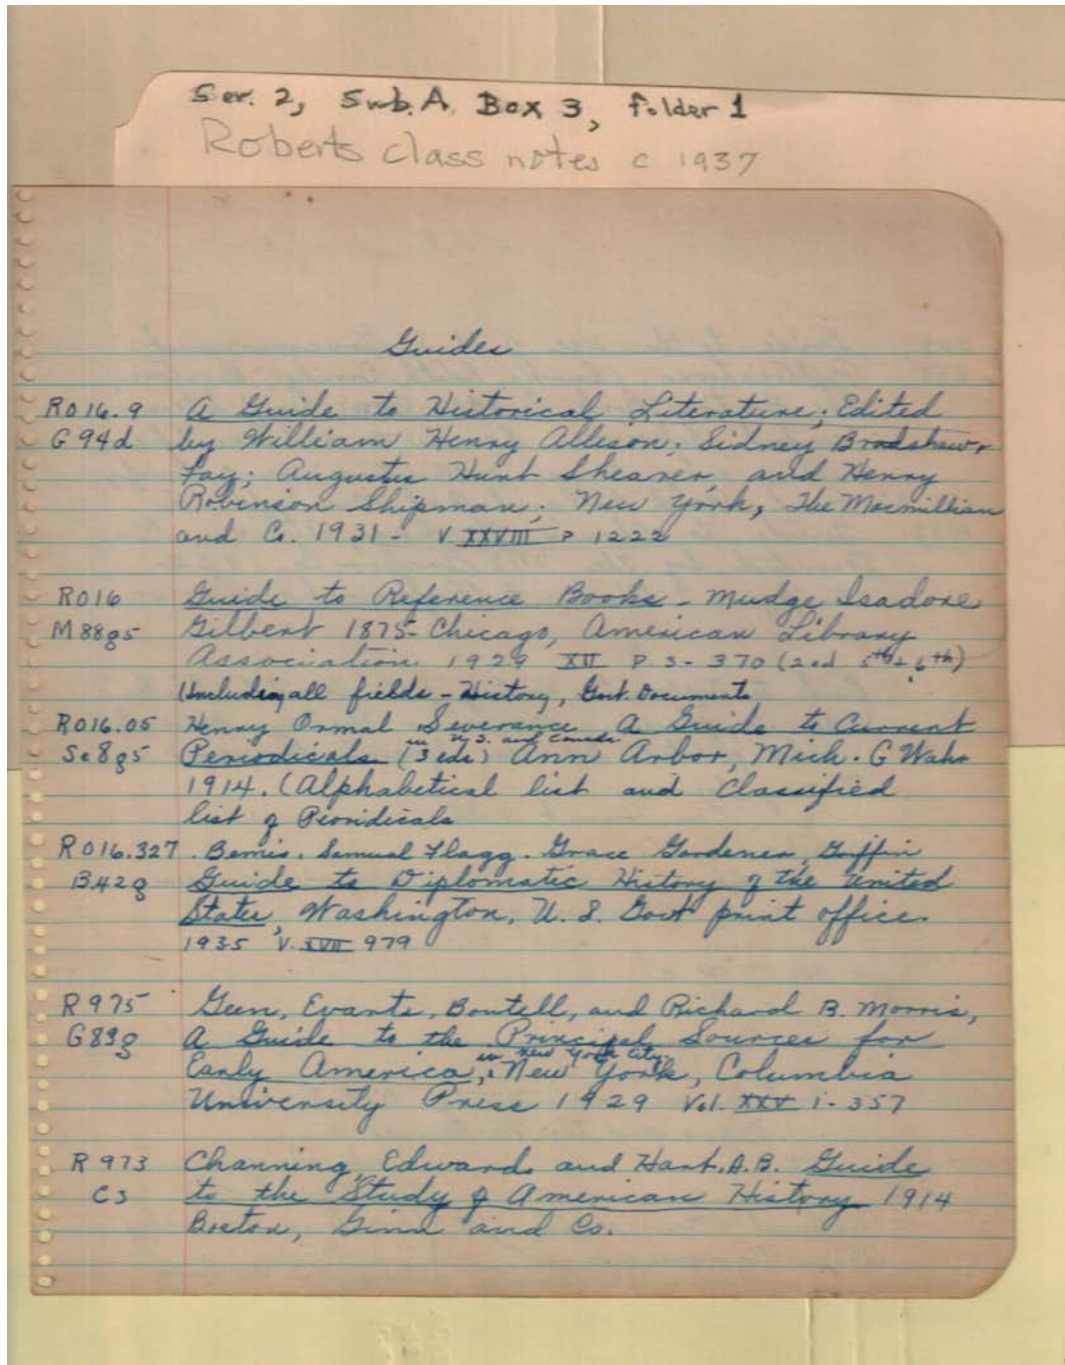 Ser. 2, Sub. A. Box 3, folder 1
Roberts class notes c 1937
Guides
R016.9 A Guide to Historical Literature; Edited
G94d by William Henry Allison; Sidney Bradshaw,
Fay; Augustus Hunt Shearer, and Henry
Robinson Shipman; New York, The Macmillian
and Co. 1931- V XXVIII P 1222
R016 Guide to Reference Books - Mudge Isadore
M88g5 Gilbert 1875- Chicago, American Library
Association 1929 XII P 3-370 (2nd 5th + 6th)
(Including all fields - History, Govt. Documents
R016.05 Henry Ormal Severance A Guide to Current
in U.S. and Canada
Se8g5 Periodicals (3 eds) Ann Arbor, Mich. G Wahr
1914. (Alphabetical list and Classified
list of Peoridicals
R016.327 Bemis, Samuel Flagg. Grace Gardener, Griffin
B42g Guide to Diplomatic History of the United
States, Washington, U. S. Govt print office.
1935 V. XVII 979
R975 Geen, Evarts, Boutell, and Richard B. Morris,
G83g A Guide to the Principal Sources for
in New York City.
Early America, New York, Columbia
University Press 1929 Vol. XXV 1-357
R973 Channing, Edward and Hart, A.B. Guide
C3 to the Study of American History 1914
Boston, Ginn and Co.